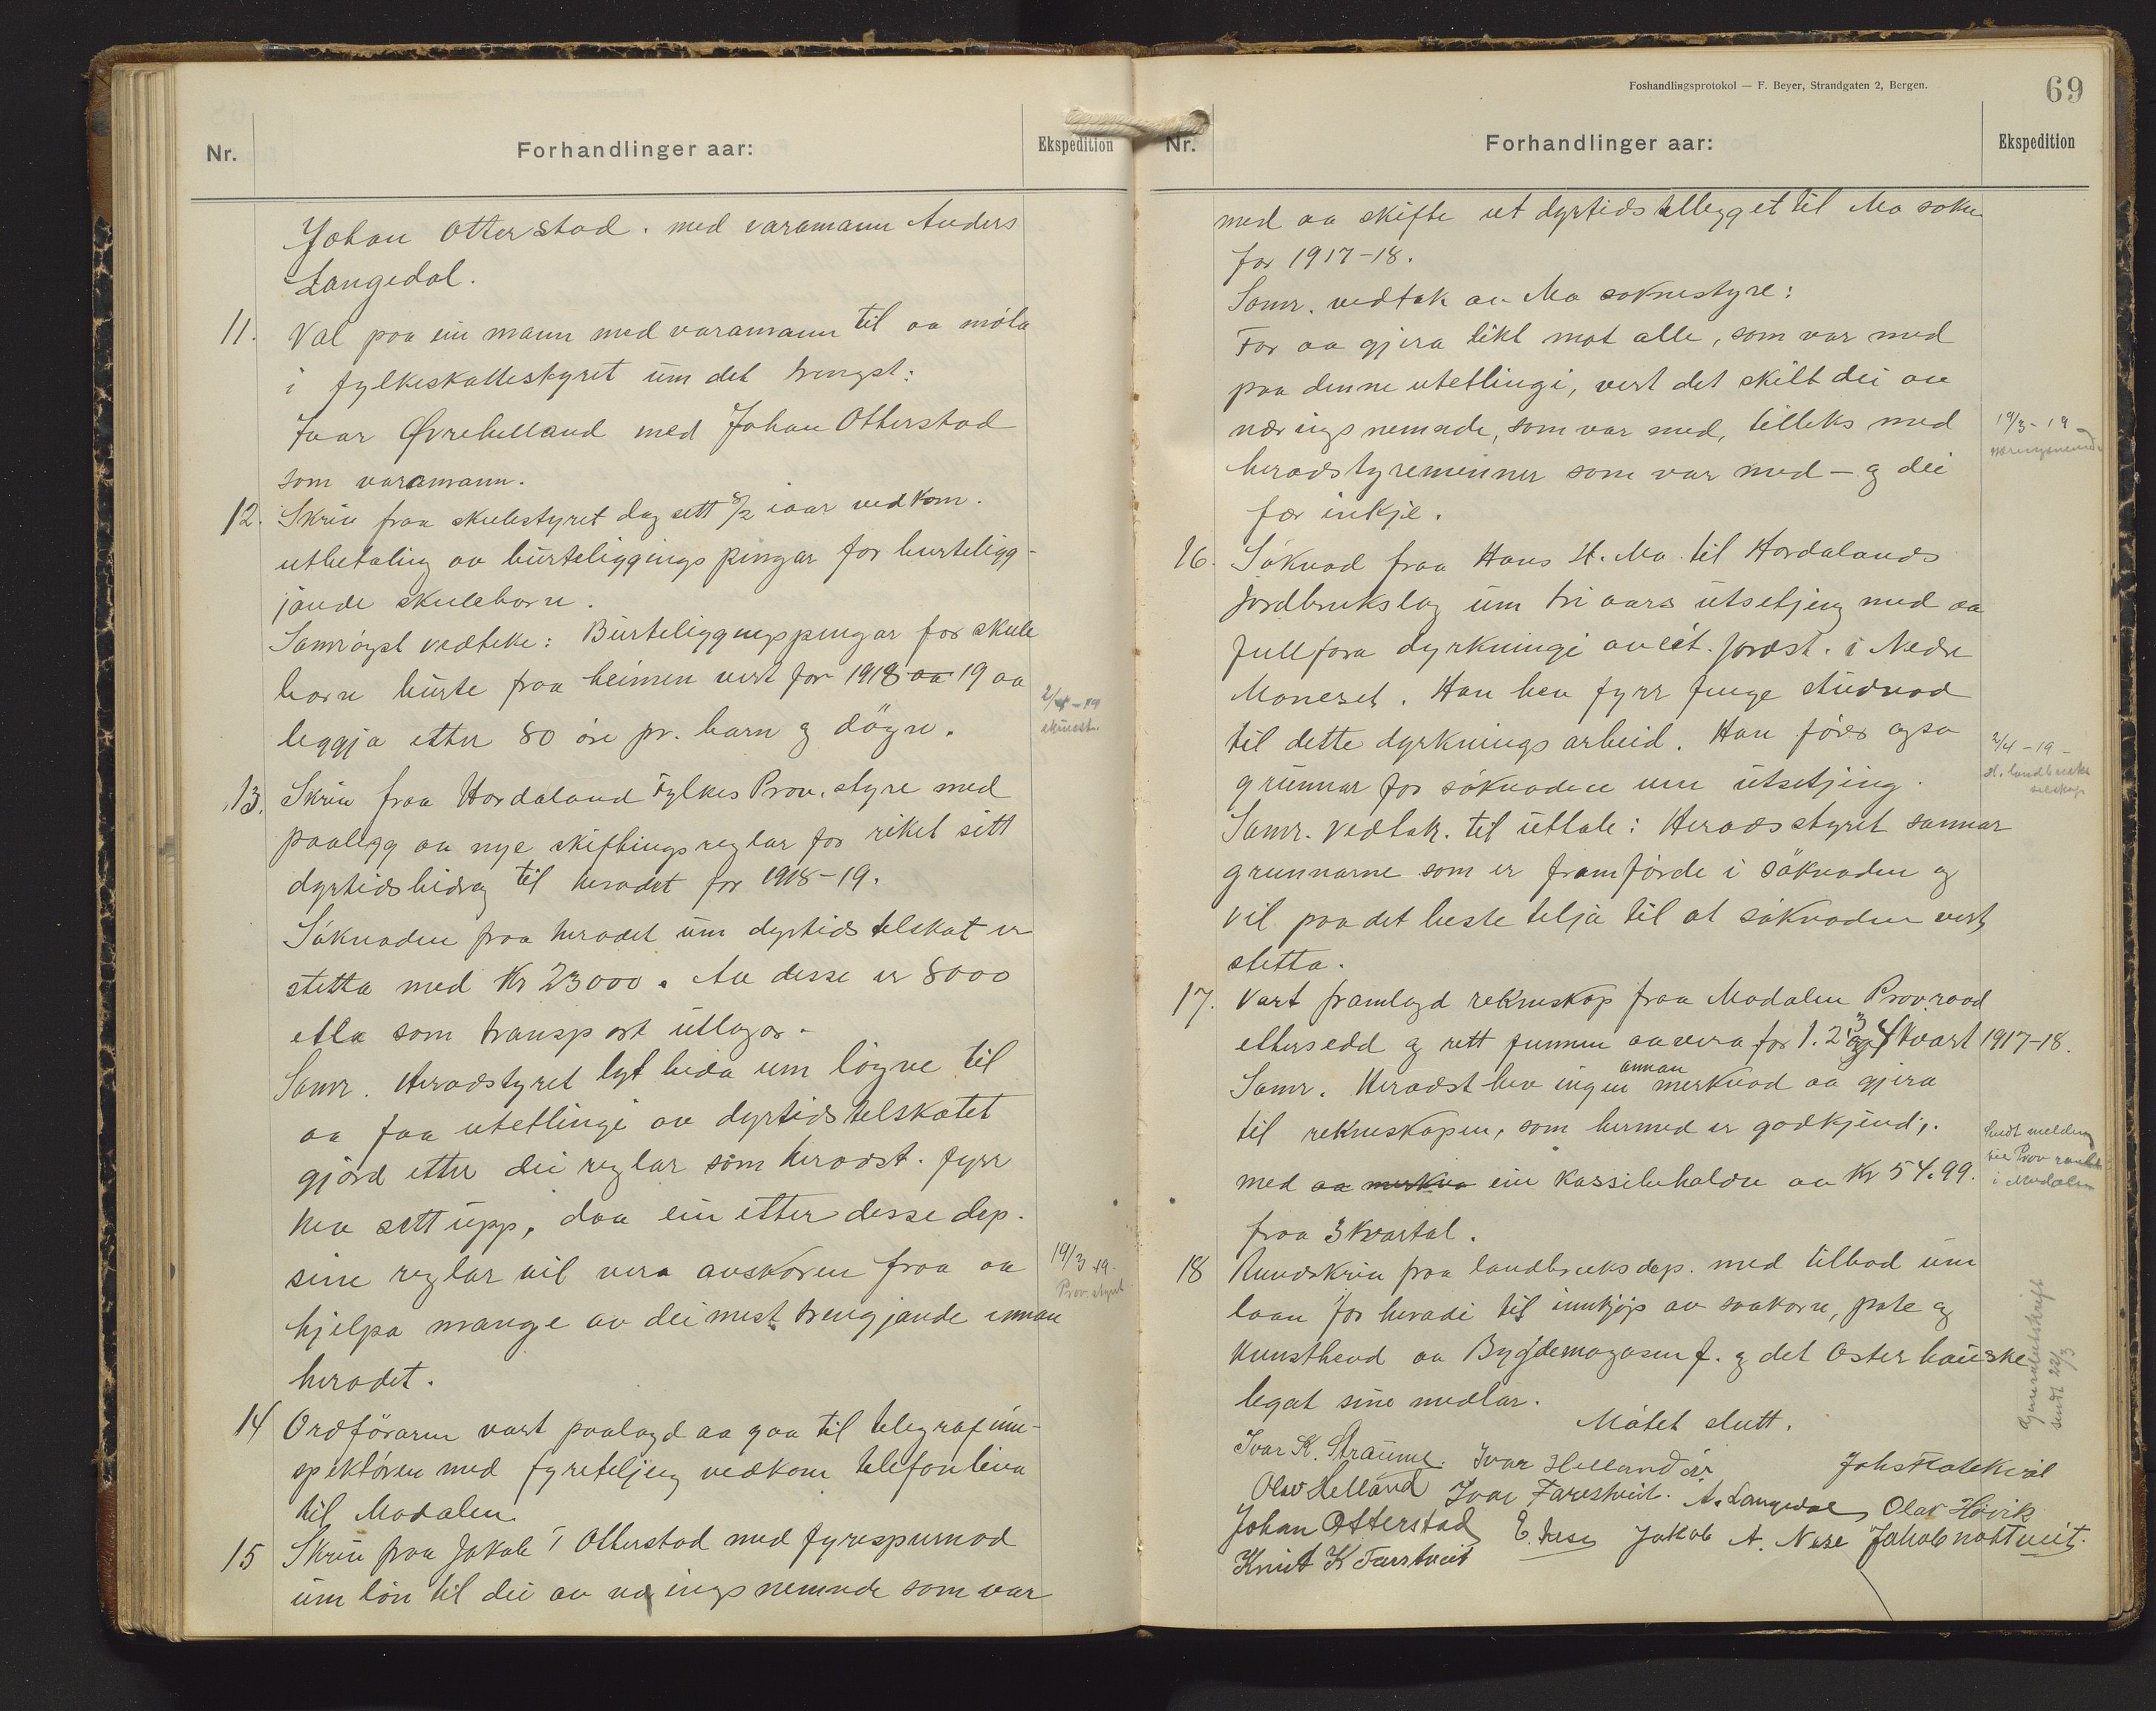 Nr.
Forhandlinger aar:
Ekspedition
Johan Otterstad. med varamann Anders
Langedal.
11. Val paa ein mann med varamann til aa möta
i fylkeskattestyret um det trengst:
Ivar Øvrehelland med Johan Otterstad
som varamann.
12. Skriv fraa skulestyret dagsett 8/2 iaar vedkom.
utbetaling av burteliggings pengar for burteligg-
jande skuleborn.
Samröyst vedteke: Burteliggingspengar for skule
born burte fraa heimen vert for 1918 aa 19 aa
leggja etter 80 öre pr. barn og dögn.
2/4-19
skulest.
13. Skriv fraa Hordaland Fylkes Prov. styre med
paalegg aa nye skiftingsreglar for riket sitt
dyrtidsbidrag til heradet for 1918-19.
Söknaden fraa heradet um dyrtids telskot er
stetta med Kr 23000. Av desse er 8000
etla som transport utlagor.
Samr. Heradstyret lyt beda um löyve til
aa faa utetlingi av dyrtids telskotet
gjord etter dei reglar som heradst. fyrr
hev sett upp, daa ein etter desse dep.
sine reglar vil vera avskoren fraa aa
hjelpa mange av dei mest trengjande innan
heradet.
19/3 19.
Prov. styret
14 Ordföraren vart paalagd aa gaa til telegrafinn-
spektören med fyreteljing vedkom telefonlina
til Modalen.
15 Skriv fraa Jakob T Otterstad med fyrespurnad
um lön til dei av næringsnemnde som var
Foshandlingsprotokol — F. Beyer, Strandgaten 2, Bergen.
69
Nr.
Forhandlinger aar:
Ekspedition
med aa skifte ut dyrtidstillegget til Mo sokn
for 1917-18.
Samr. vedtak av Mo soknestyre:
For aa gjera likt mot alle, som var med
paa denne utetlingi, vert det skilt dei av
næringsnemnde, som var med, tilleks med
heradstyremenner som var med - og dei
fær inkje.
19/3-19
næringsnemnde
16. Söknad fraa Hans H. Mo til Hordalands
jordbrukslag um tri aars utsetjing med aa
fullföra dyrkningi av eit jordst. i Nedre
Moneset. Han hev fyrr fenge studnad
til dette dyrknings arbeid. Han förer ogso
grunnar for söknaden um utsetjing.
Samr. vedtak. til uttale: Heradsstyret sannar
grunnarne som er framförde i söknaden og
vil paa det beste telja til at söknaden vert
stetta.
2/4-19-
H. landbruks
selskap
17. Vart framlagd rekneskap fraa Modalen Provraad
ettersedd og rett funnen aa vera for 1. 2 3 og 4 kvart 1917-18.
Samr. Heradst hev ingen annan merknad aa gjera
til rekneskapen, som hermed er godkjend,.
med aa merkna ein kassibehaldn aa Kr 54.99.
fraa 3 kvartal.
Sendt melding
til Prov raadet
i Modalen
18 Rundskriv fraa landbruksdep. med tilbod um
laan for heradi til innkjöp av saakorn, pote og
kunsthevd av Bygdemagasin f. og det Osterhauske
legat sine medlar.
Mötet slutt.
Gjenpartskrift
sendt 22/3
Ivar K. Straume. Ivar Helland Johs Flatekval
Olav Helland Ivar Farestveit. A. Langedal Olav Hövik
Johan Otterstad E. Nese Jakob A. Nese Jakob nottveit.
Knut K Farestveit